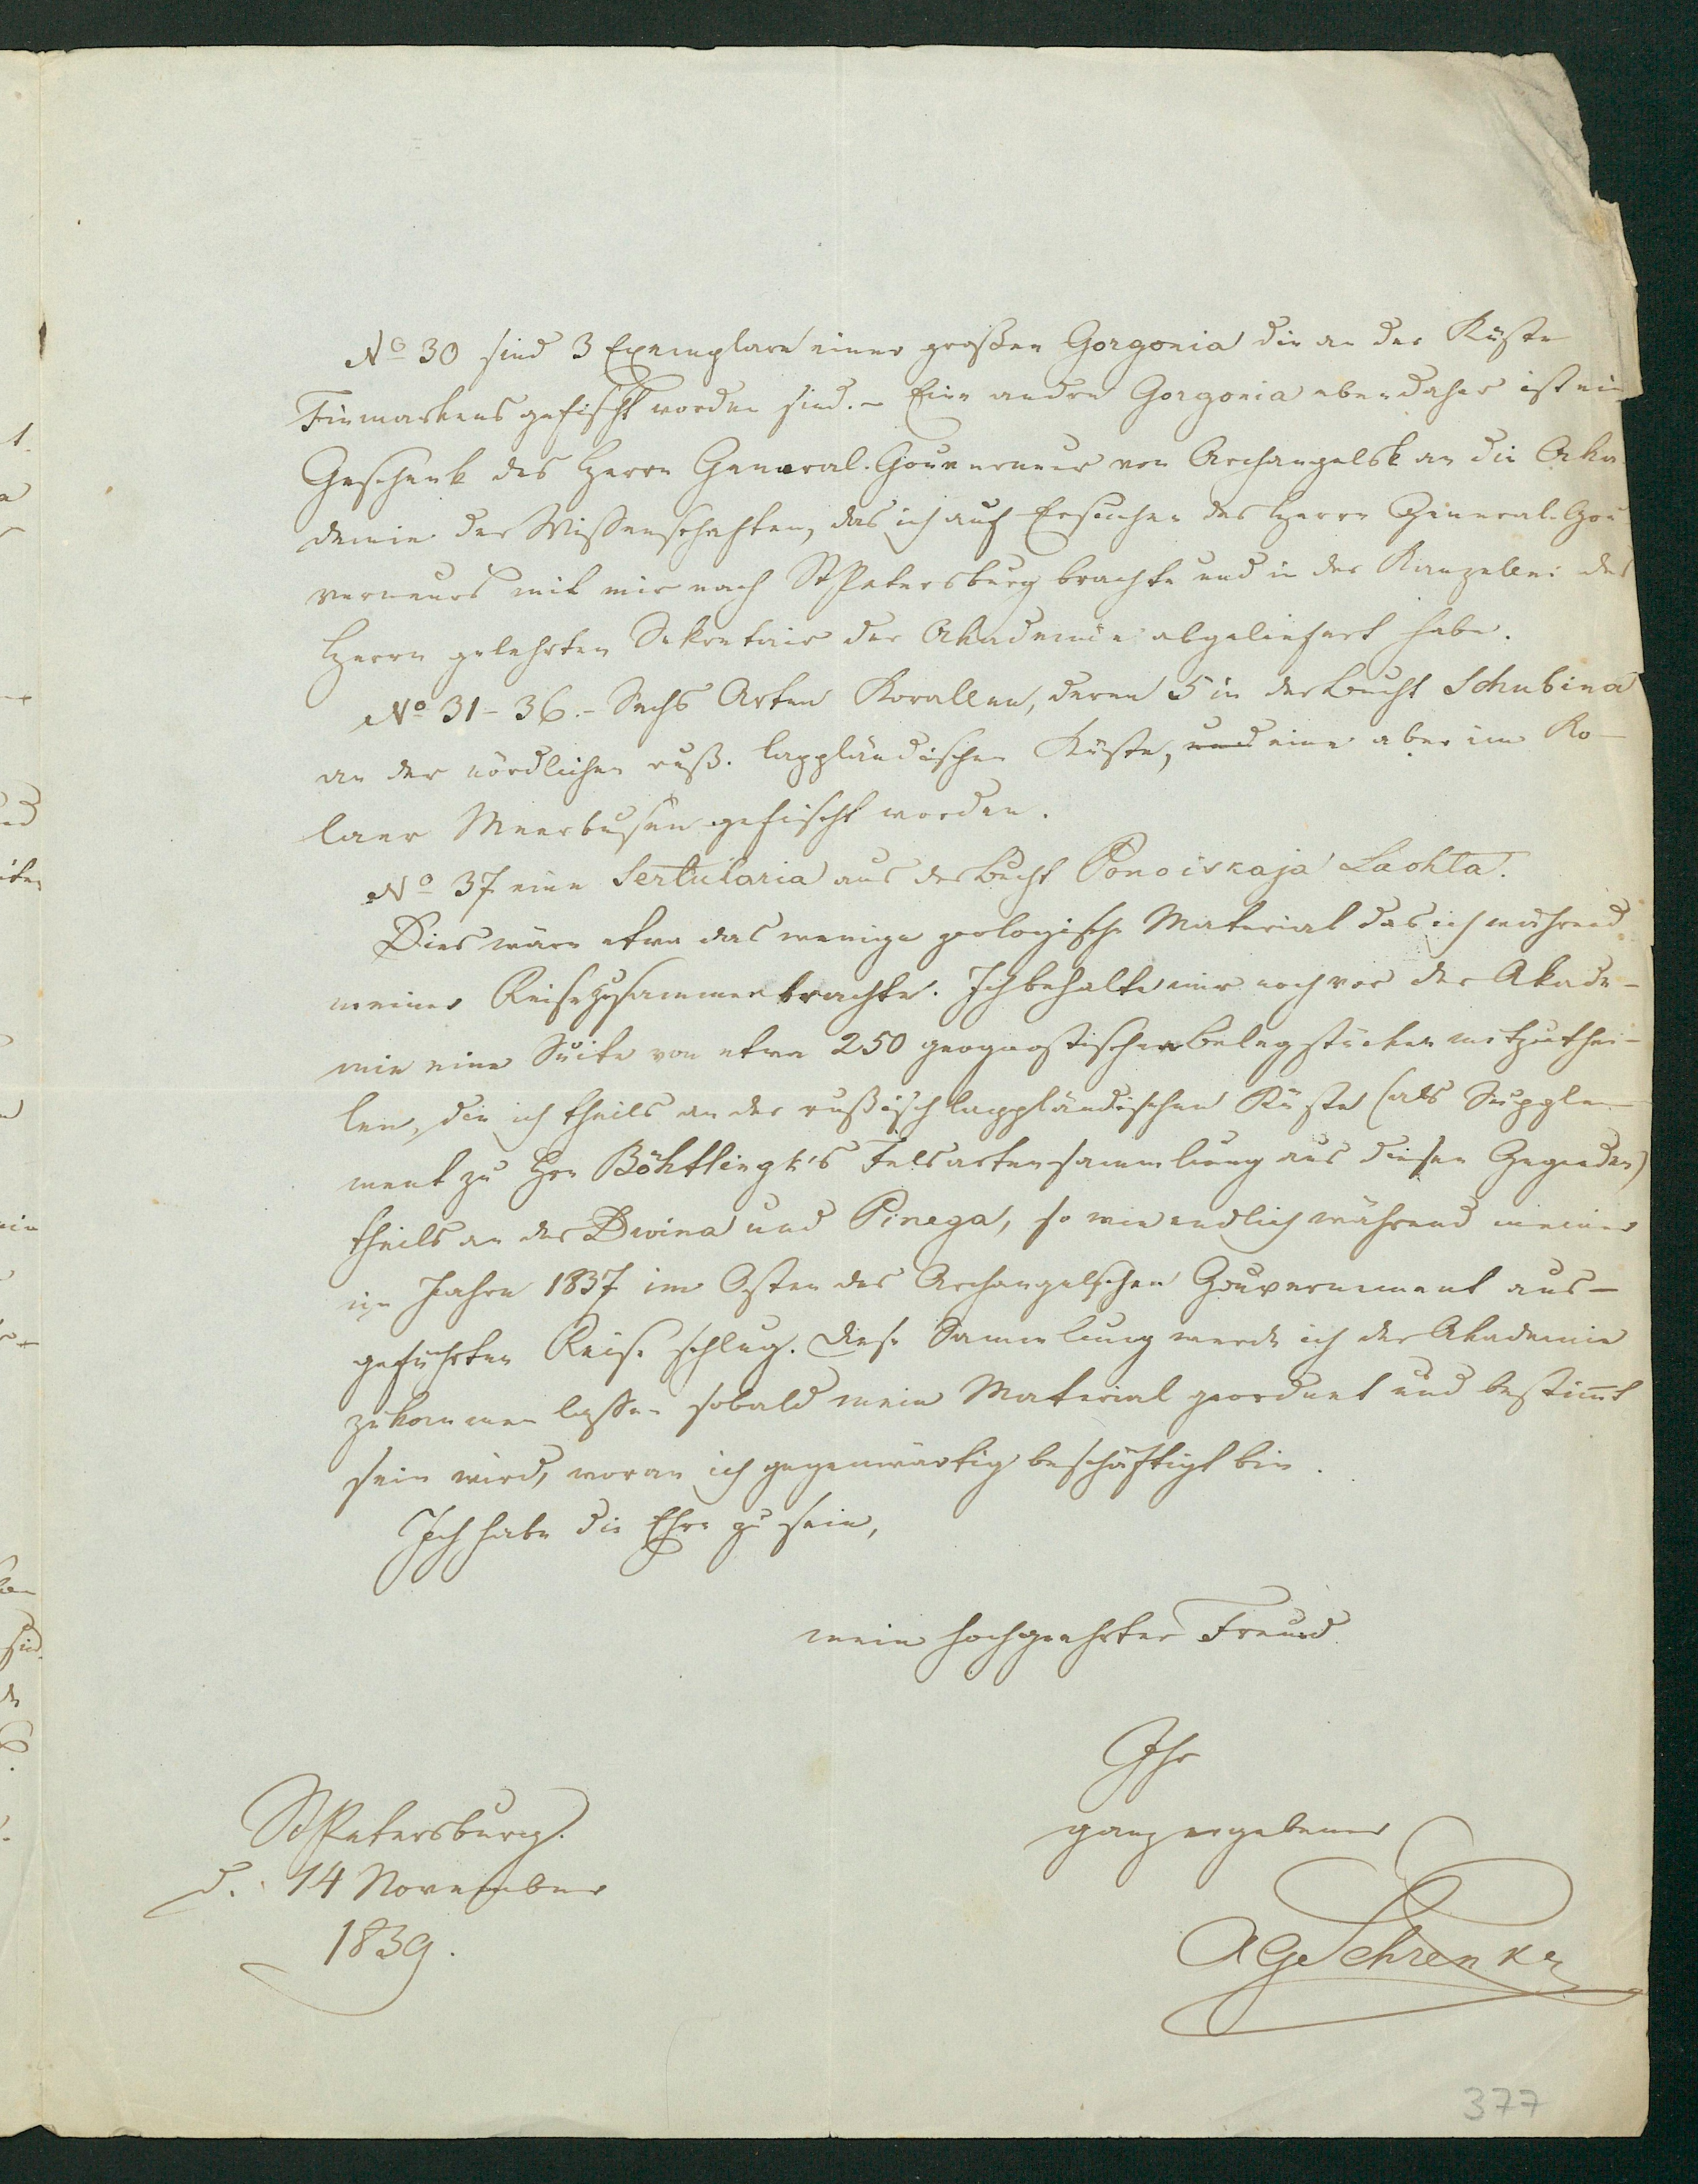 No 30 sind 3 Exemplare einer großen Gorgonia die an der Küste
Finmarkens gefischt worden sind. – Eine andre Gorgonia ebendaher ist ein
Geschenk des Herrn General-Gouverneur von Archangelsk an die Aka-
demie der Wissenschaften, das ich auf Ersuchen des Herrn General-Gou-
verneurs mit mir nach St Petersburg brachte und in der Kanzellei des
Herrn gelehrten Sekretair der Akademie abgeliefert habe.
No 31–36. – Sechs Arten Korallen, deren 5 in der Bucht Schubina
an der nördlichen russ. lappländischen Küste, und eine aber im Ko-
laer Meerbusen gefischt worden.
No 37 eine Sertularia aus der Bucht Ponoiskaja Lachta.
Dies wäre etwa das wenige zoologische Material das ich während
meiner Reise zusammenbrachte. Ich behalte mir noch vor der Akade-
mie eine Suite von etwa 250 geognostischen Belegstücken mitzuthei-
len, die ich theils an der russisch lappländischen Küste (als Supple-
ment zu Hrn Böhtlingk's Felsartensammlung aus diesen Gegenden)
theils an der Dwina und Pinega, so wie endlich während meiner
im Jahre 1837 im Osten des Archangelschen Gouvernement aus-
geführten Reise schlug. Diese Sammlung werde ich der Akademie
zukommen lassen sobald mein Material geordnet und bestimt
sein wird, woran ich gegenwärtig beschäftigt bin.
Ich habe die Ehre zu sein,
mein hochgeehrter Freund
Ihr
ganz ergebener
AGSchrenk
St Petersburg.
d. 14 November
1839.
377